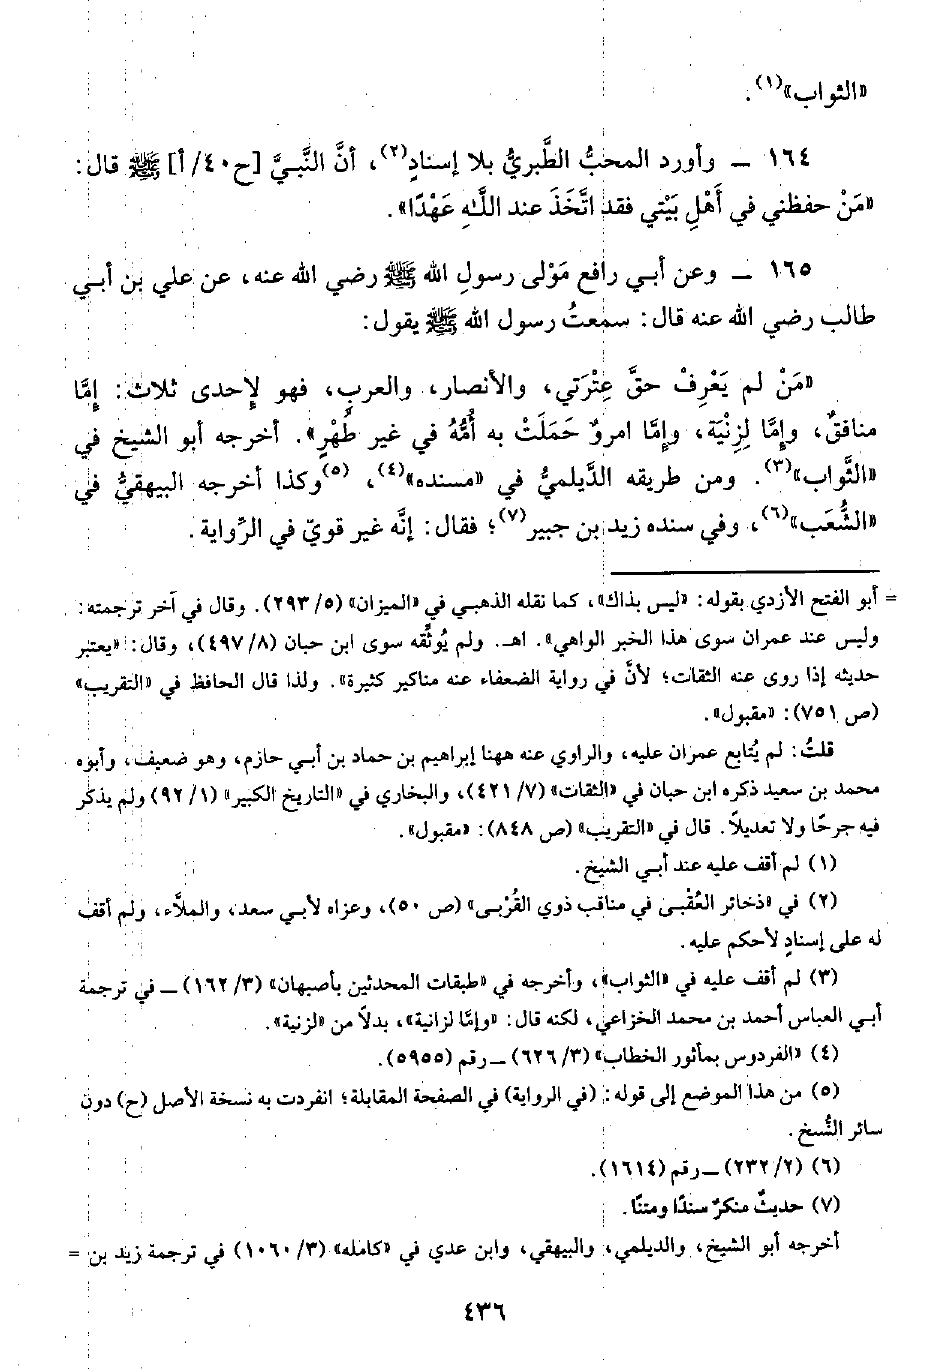 «الثواب»(١).
١٦٤ ـ وأورد المحبُّ الطَّبريُّ بلا إسنادٍ(٢)، أنَّ النَّبيَّ [ح٤٠/أ] ﷺ قال:
«مَنْ حفظني في أَهْلِ بَيْتي فقد اتَّخَذَ عند اللَّـهِ عَهْدًا».
١٦٥ ـ وعن أبي رافع مَوْلى رسولِ الله ﷺ رضي الله عنه، عن علي بن أبي
طالب رضي الله عنه قال: سمعتُ رسول الله ﷺ يقول:
«مَنْ لم يَعْرِفْ حقَّ عِتْرَتي، والأنصار، والعربِ، فهو لإِحدى ثلاث: إمَّا
منافقٌ، وإمَّا لِزِنْيَة، وإمَّا امروٌ حَمَلَتْ به أُمُّهُ في غير طُهْرٍ». أخرجه أبو الشيخ في
«الثَّواب»(٣). ومن طريقه الدَّيلميُّ في «مسنده»(٤)، (٥)وكذا أخرجه البيهقيُّ في
«الشُّعَب»(٦)، وفي سنده زيد بن جبير(٧)؛ فقال: إنَّه غير قويّ في الرِّواية.
= أبو الفتح الأزدي بقوله: «ليس بذاك»، كما نقله الذهبي في «الميزان» (٢٩٣/٥). وقال في آخر ترجمته:
وليس عند عمران سوى هذا الخبر الواهي». اهـ. ولم يُوثِّقه سوى ابن حبان (٤٩٧/٨)، وقال: «يعتبر
حديثه إذا روى عنه الثقات؛ لأنَّ في رواية الضعفاء عنه مناكير كثيرة». ولذا قال الحافظ في «التقريب»
(ص ٧٥١): «مقبول».
قلتُ: لم يُتابع عمران عليه، والراوي عنه ههنا إبراهيم بن حماد بن أبي حازم، وهو ضعيف، وأبوه
محمد بن سعيد ذكره ابن حبان في «الثقات» (٤٢١/٧)، والبخاري في «التاريخ الكبير» (٩٢/١) ولم يذكر
فيه جرحًا ولا تعديلاً. قال في «التقريب» (ص ٨٤٨): «مقبول».
(١) لم أقف عليه عند أبي الشيخ.
(٢) في «ذخائر العُقْبى في مناقب ذوي القُرْبى» (ص ٥٠)، وعزاه لأبي سعد، والملاَّء، ولم أقف
له على إسنادٍ لأحكم عليه.
(٣) لم أقف عليه في «الثواب»، وأخرجه في «طبقات المحدثين بأصبهان» (١٦٢/٣) ـ في ترجمة
أبي العباس أحمد بن محمد الخزاعي، لكنه قال: «وإمَّا لزانية»، بدلاً من «لزنية».
(٤) «الفردوس بمأثور الخطاب» (٦٢٦/٣) ـ رقم (٥٩٥٥).
(٥) من هذا الموضع إلى قوله: (في الرواية) في الصفحة المقابلة؛ انفردت به نسخة الأصل (ح) دون
سائر النُّسخ.
(٦) (٢٣٢/٢) ـ رقم (١٦١٤).
(٧) حديثٌ منكرٌ سندًا ومتنًا.
أخرجه أبو الشيخ، والديلمي، والبيهقي، وابن عدي في «كامله» (١٠٦٠/٣) في ترجمة زيد بن =
٤٣٦